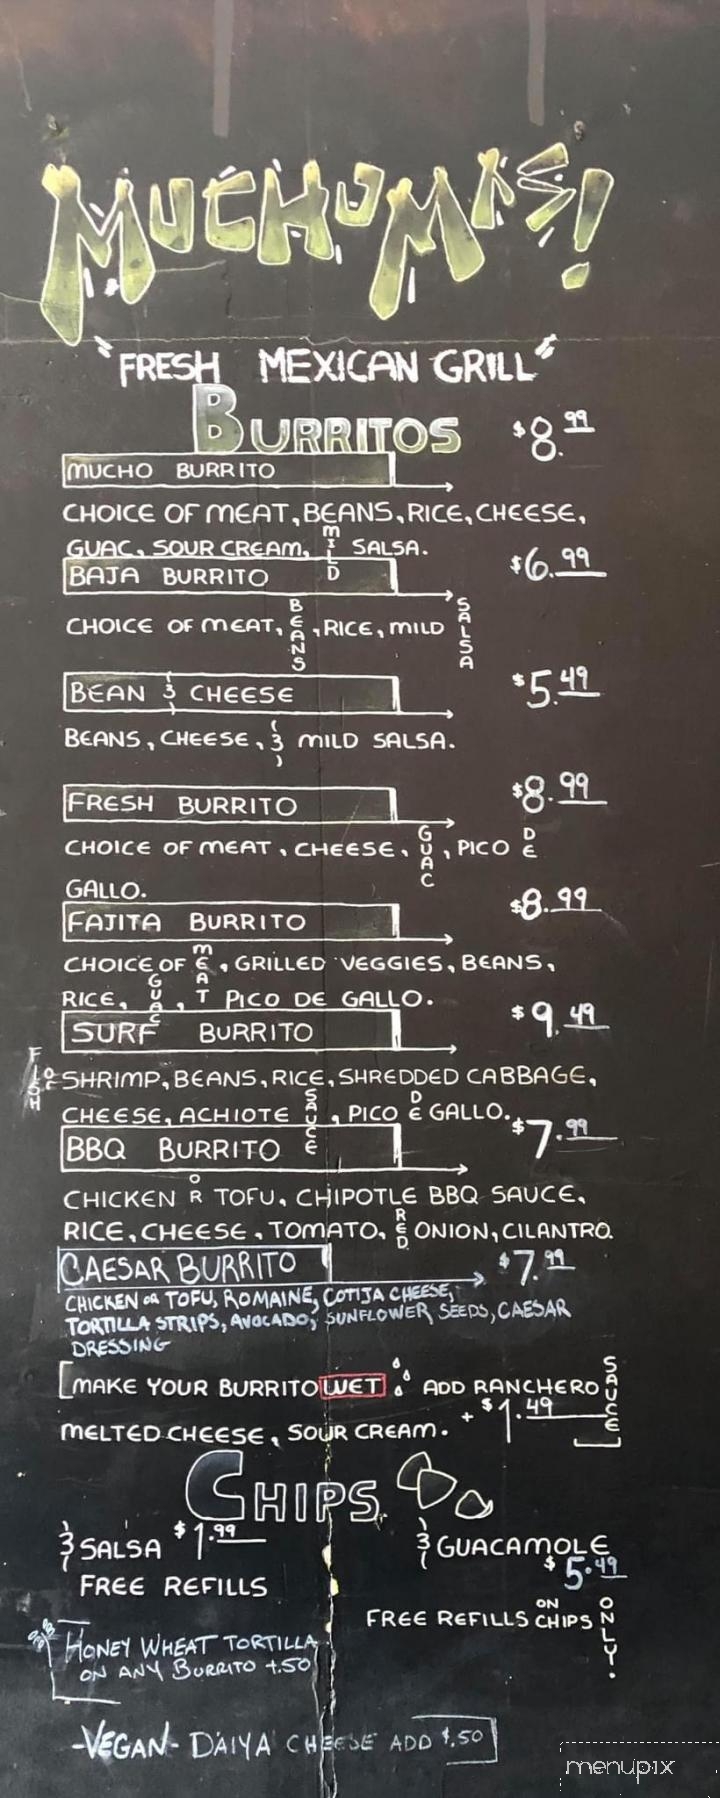 MUCHO MAS!
"FRESH MEXICAN GRILL"
BURRITOS $8.99
MUCHO BURRITO
CHOICE OF MEAT, BEANS, RICE, CHEESE,
GUAC, SOUR CREAM, MILD SALSA.
BAJA BURRITO $6.99
CHOICE OF MEAT, BEANS, RICE, MILD SALSA
BEAN & CHEESE $5.49
BEANS, CHEESE, & MILD SALSA.
FRESH BURRITO $8.99
CHOICE OF MEAT, CHEESE, GUAC, PICO DE
GALLO.
FAJITA BURRITO $8.99
CHOICE OF MEAT, GRILLED VEGGIES, BEANS,
RICE, GUAC, PICO DE GALLO.
SURF BURRITO $9.49
FISH OR SHRIMP, BEANS, RICE, SHREDDED CABBAGE,
CHEESE, ACHIOTE SAUCE, PICO DE GALLO.
BBQ BURRITO $7.99
CHICKEN OR TOFU, CHIPOTLE BBQ SAUCE,
RICE, CHEESE, TOMATO, RED ONION, CILANTRO.
CAESAR BURRITO $7.99
CHICKEN OR TOFU, ROMAINE, COTIJA CHEESE,
TORTILLA STRIPS, AVOCADO, SUNFLOWER SEEDS, CAESAR
DRESSING
[MAKE YOUR BURRITO WET ADD RANCHERO SAUCE
MELTED CHEESE, SOUR CREAM. + $1.49]
CHIPS
& SALSA $1.99
FREE REFILLS
& GUACAMOLE
$5.49
FREE REFILLS ON CHIPS ONLY!
HONEY WHEAT TORTILLA
ON ANY BURRITO +.50
-VEGAN- DAIYA CHEESE ADD $.50
menupix